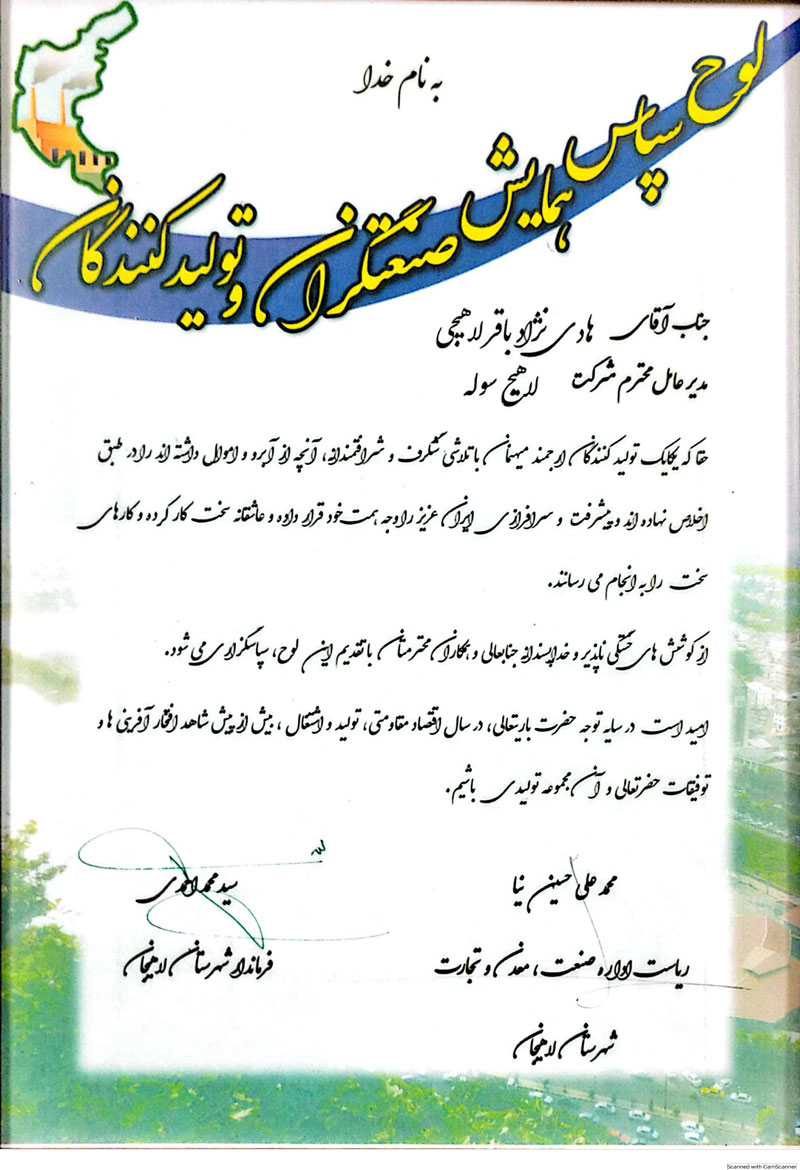 به نام خدا
لوح سپاس همایش صنعتگران و تولیدکنندگان
جناب آقای هادی نژاد باقر لاهیجی
مدیر عامل محترم شرکت لاهیج سوله
حقا که یکایک تولید کنندگان ارجمند میهنمان با تلاشی شگرف و شرافتمندانه، آنچه از آبرو و اموال داشته اند را در طبق
اخلاص نهاده اند و پیشرفت و سرافرازی ایران عزیز را وجه همت خود قرار داده و عاشقانه سخت کار کرده و کارهای
سخت را به انجام می رسانند.
از کوشش های خستگی ناپذیر و خداپسندانه جنابعالی و همکاران محترمتان با تقدیم این لوح، سپاسگزاری می شود.
امید است در سایه توجه حضرت باریتعالی، در سال اقتصاد مقاومتی، تولید و اشتغال، بیش از پیش شاهد افتخار آفرینی ها و
توفیقات حضرتعالی و آن مجموعه تولیدی باشیم.
محمد علی حسین نیا
سید محمد احمدی
ریاست اداره صنعت، معدن و تجارت
فرماندار شهرستان لاهیجان
شهرستان لاهیجان
Scanned with CamScanner